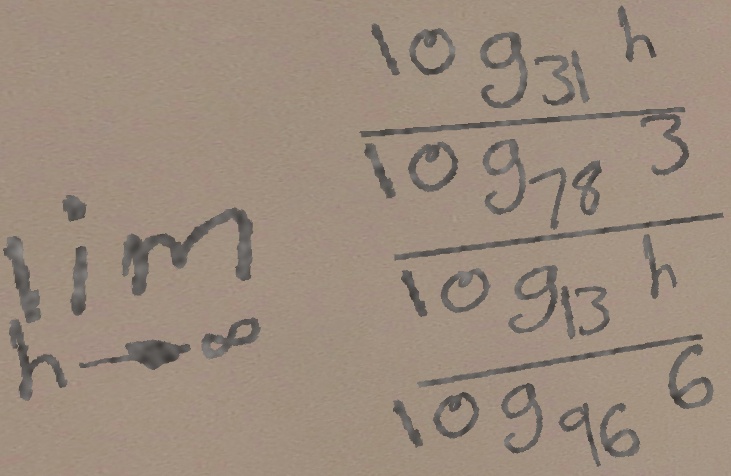 lim
h→∞
log₃₁ h
log₇₈ 3
log₁₃ h
log₉₆ 6